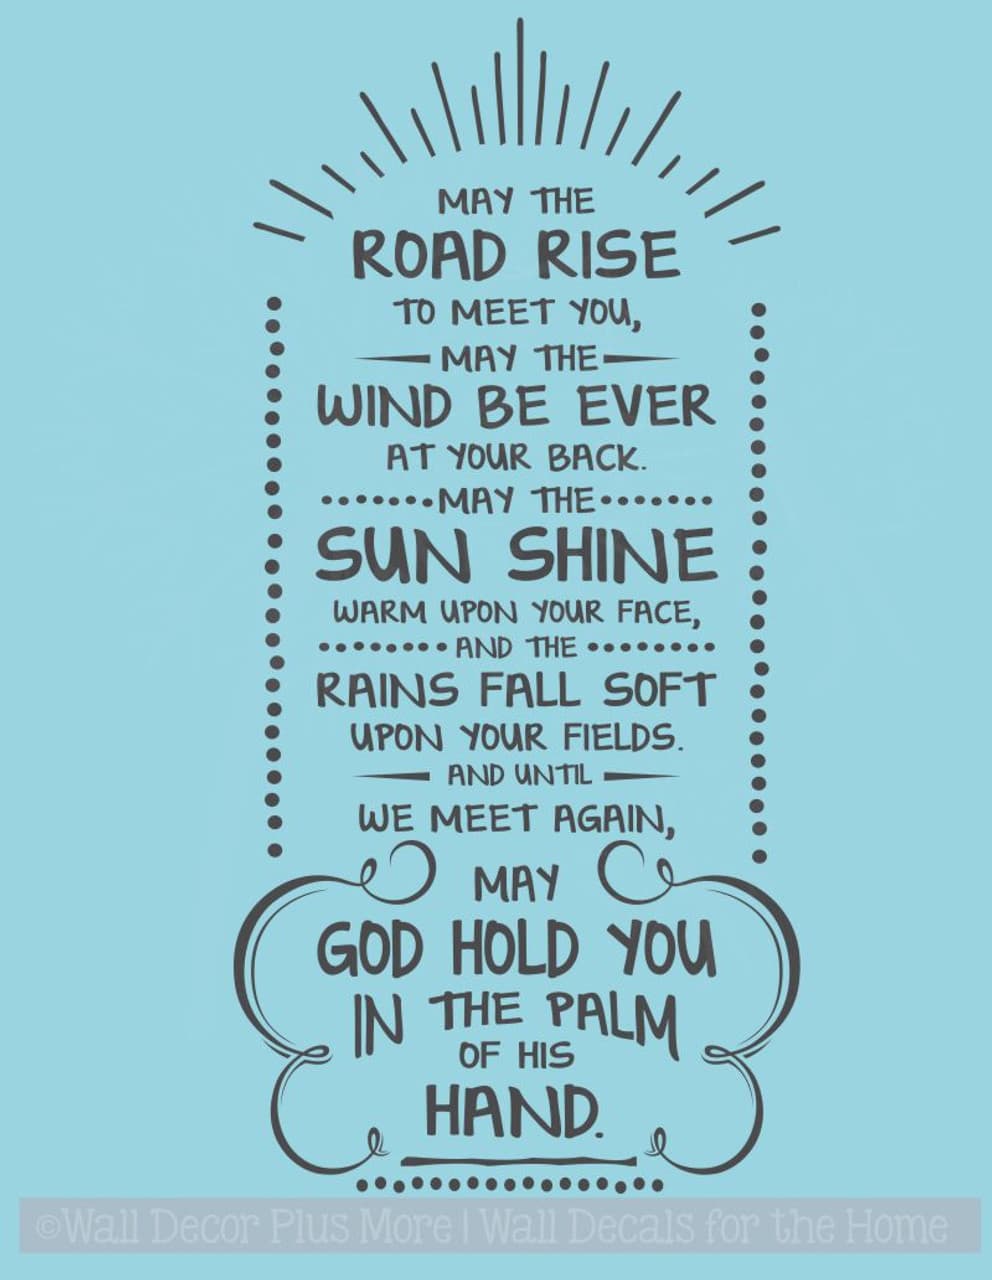 MAY THE
ROAD RISE
TO MEET YOU,
MAY THE
WIND BE EVER
AT YOUR BACK.
MAY THE
SUN SHINE
WARM UPON YOUR FACE,
AND THE
RAINS FALL SOFT
UPON YOUR FIELDS.
AND UNTIL
WE MEET AGAIN,
MAY
GOD HOLD YOU
IN THE PALM
OF HIS
HAND.
©Wall Decor Plus More | Wall Decals for the Home